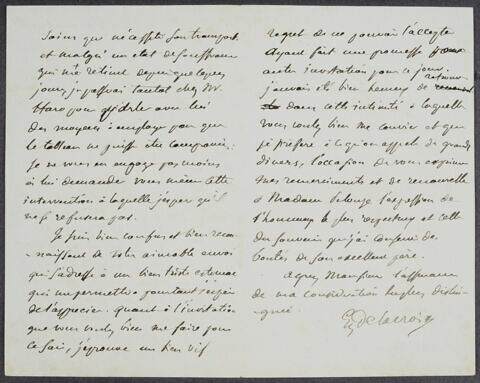 soins que nécessite son transport
et malgré un état de souffrance
qui me retient depuis quelques
jours je passerai tantôt chez Mr
Haro pour avec lui
des moyens à employer pour que
le tableau ne puisse être compromis.
Je ne vous en engage pas moins
à lui demander vous même cette
intervention à laquelle j'espère qu'il
ne se refusera pas.
Je suis bien confus et bien recon-
naissant de votre aimable envoi
qui s'adresse à un bien triste estomac
qui me permettra pourtant j'espère
de l'apprécier. Quant à l'invitation
que vous voulez bien me faire pour
ce soir, j'éprouve un bien vif
regret de ne pouvoir l'accepter
ayant fait une promesse
autre invitation pour ce jour.
J'aurais été bien heureux de
dans cette intimité à laquelle
vous voulez bien me convier et que
je préfère à ce qu'on appelle de grands
diners, l'occasion de vous exprimer
mes remerciements et de renouveler
à Madame l'expression de
l'hommage le plus respectueux et celle
du souvenir que j'ai conservé des
bontés de son excellent père.
Agréez Monsieur l'assurance
de ma considération la plus distin-
guée.
Eg Delacroix